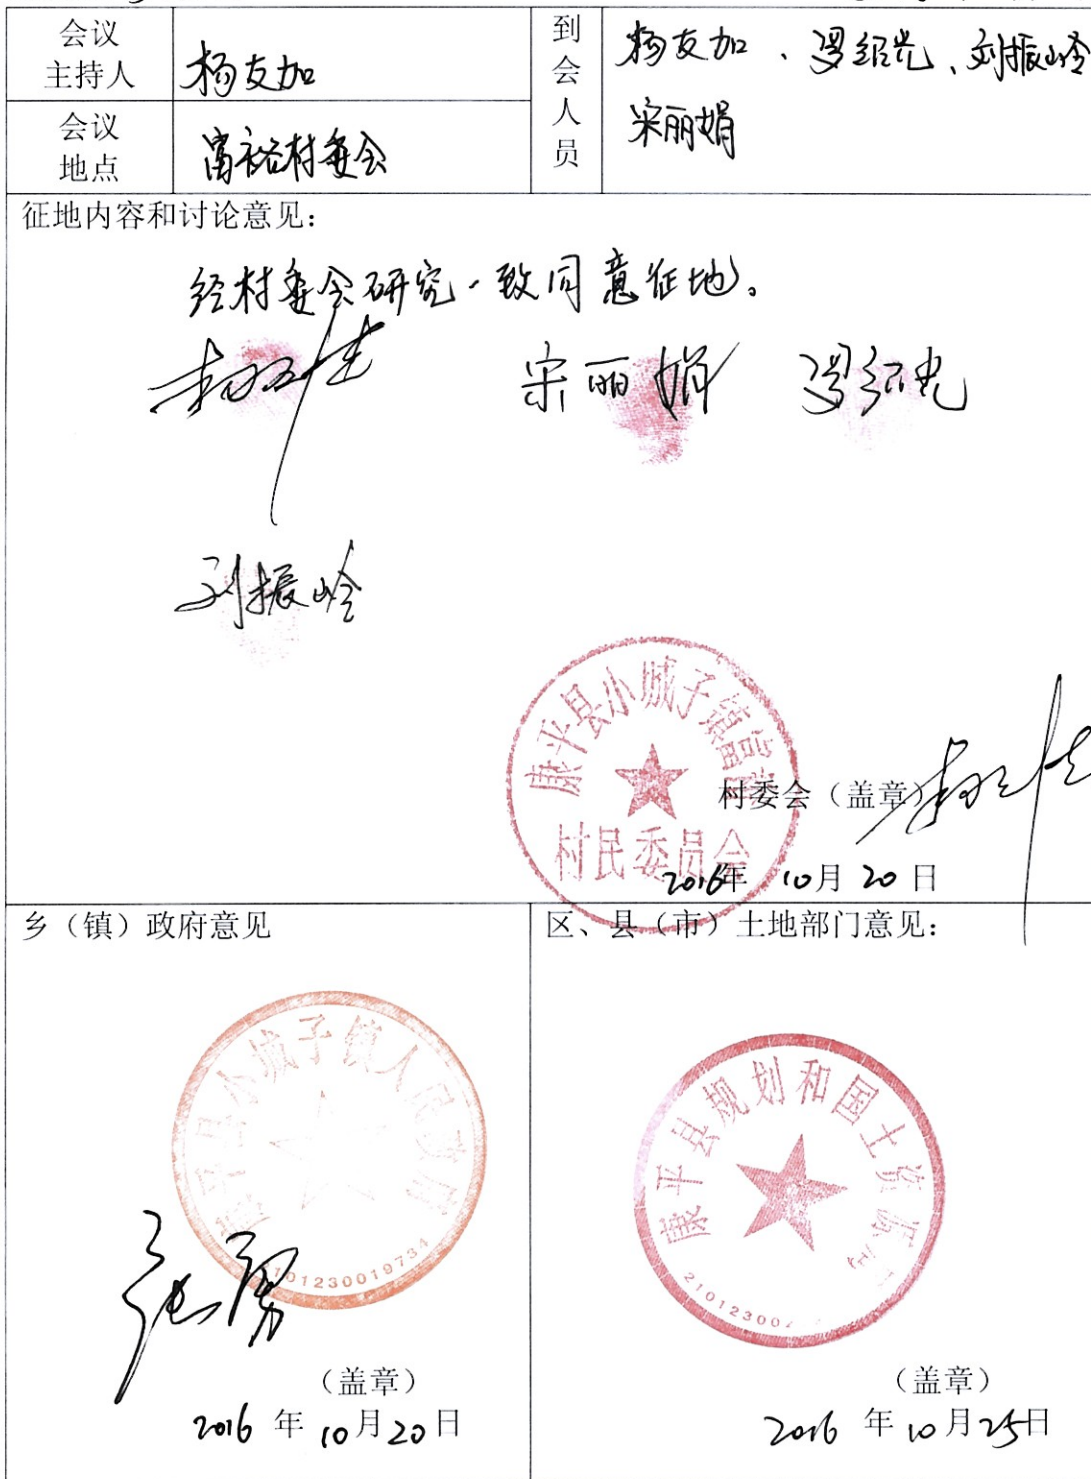 会议
主持人
杨友加
到会人员
杨友加、罗绍光、刘振岭
宋丽娟
会议
地点
富裕村委会
征地内容和讨论意见：
经村委会研究一致同意征地。
宋丽娟 罗绍光
刘振岭
康平县小城子镇富裕
村民委员会
村委会（盖章）
2016年 10月 20 日
乡（镇）政府意见
康平县小城子镇人民政府
2101230019734
张勇
（盖章）
2016 年 10月20日
区、县（市）土地部门意见：
康平县规划和国土资源局
（盖章）
2016 年 10月25日